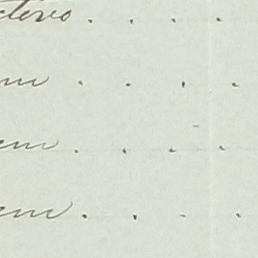 ctivo . . . .
em . . . .
em . . . .
em . . . .